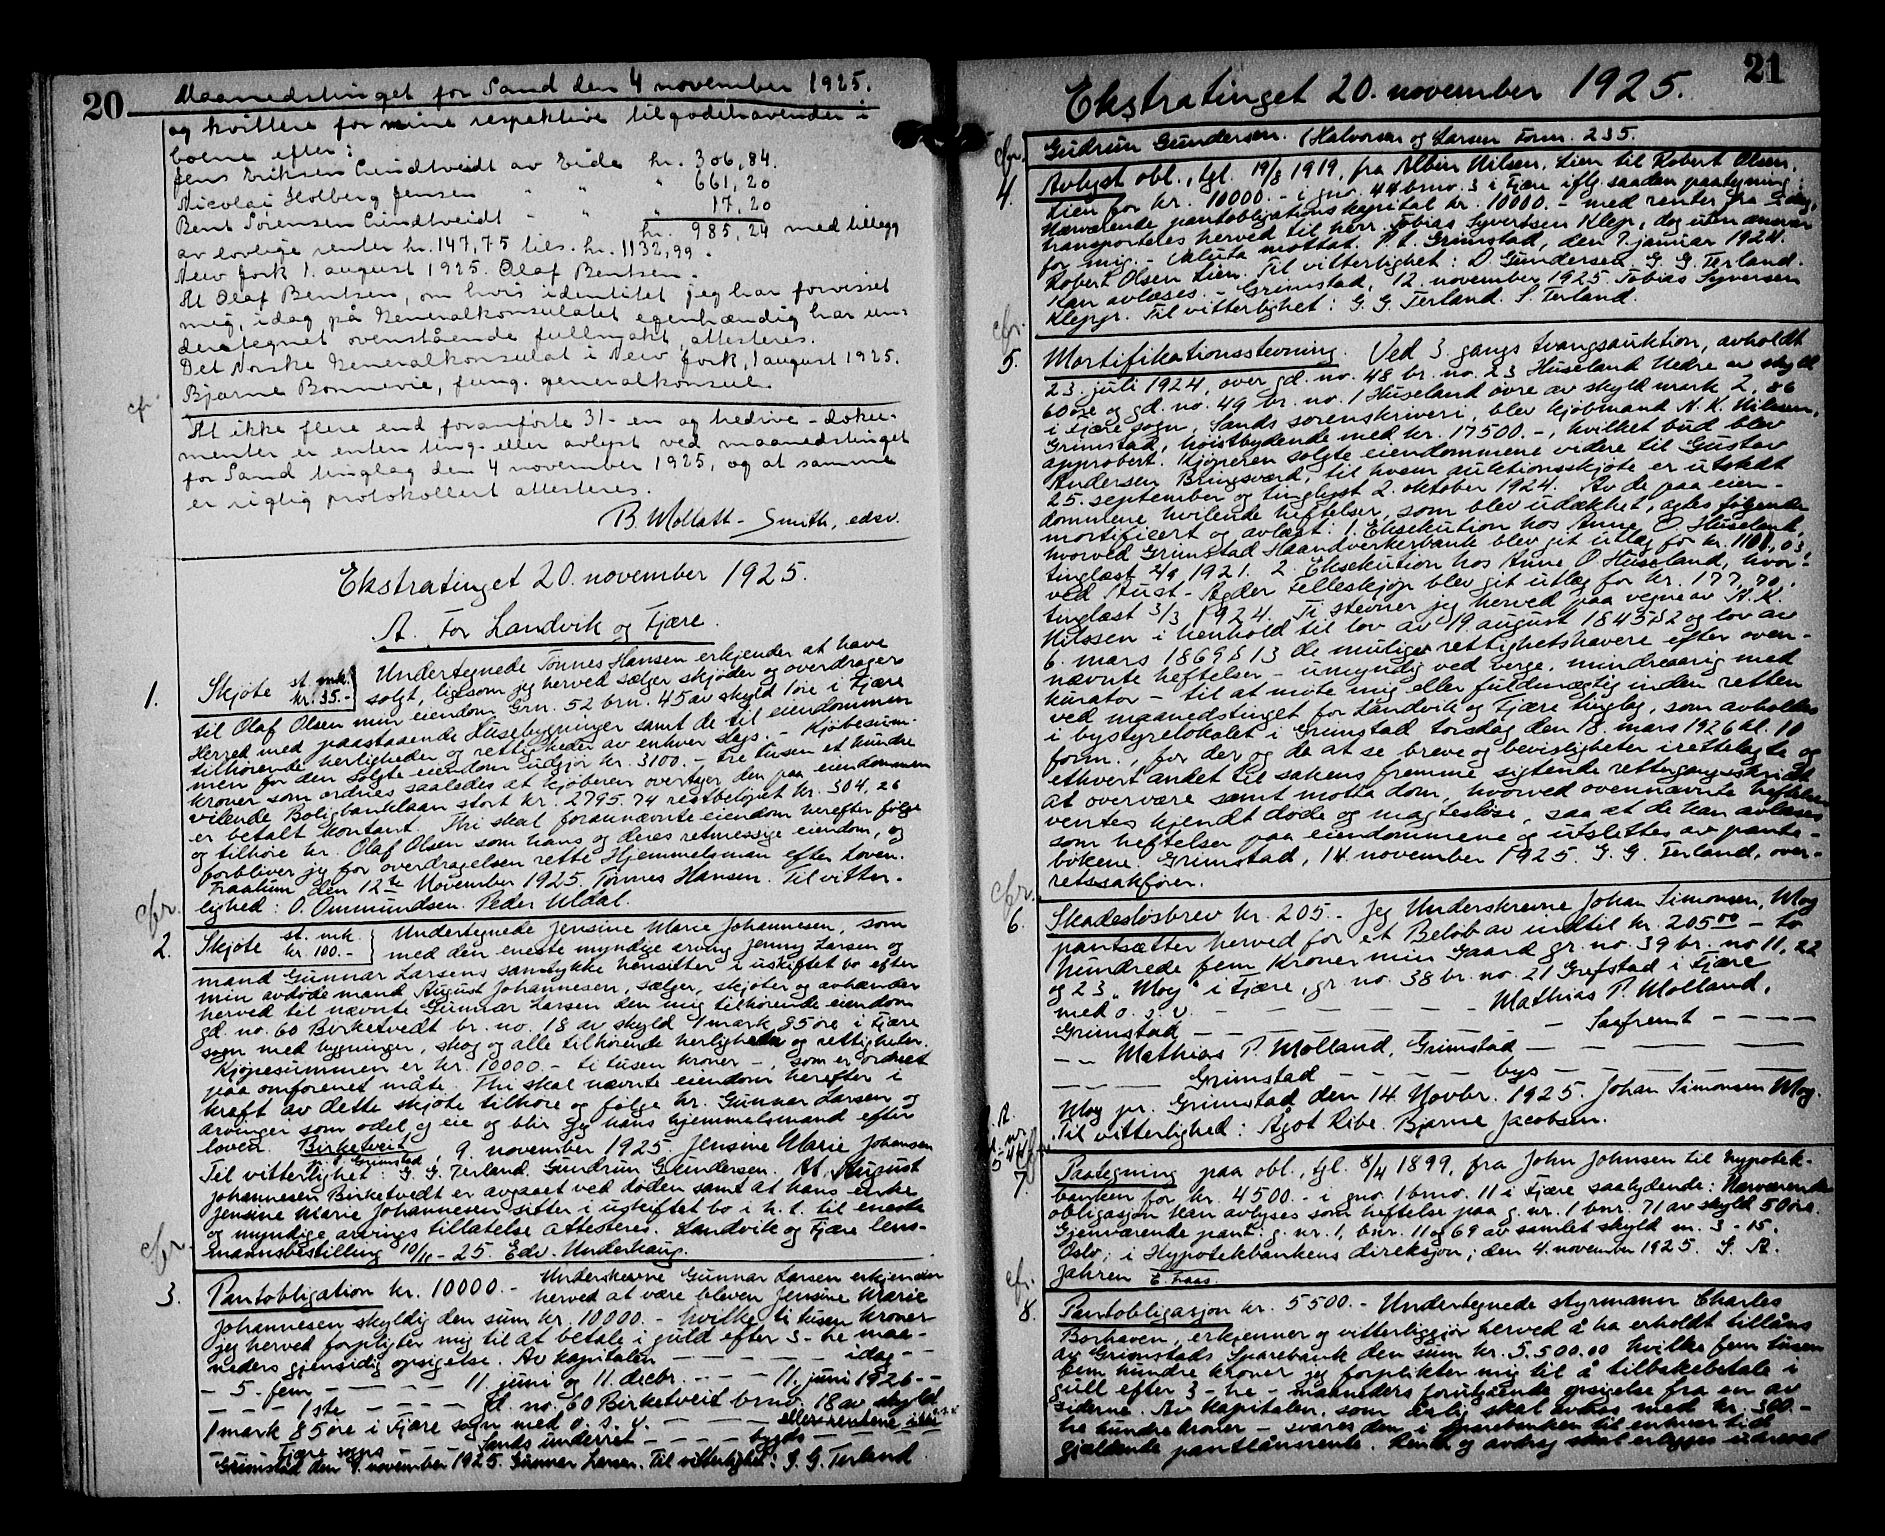 20
Maanedstinget for Sand den 4 november 1925.
og kvittere for mine respektive tilgodehavender i
boene efter:
Jens Eriksen Lindtveidt av Eide kr. 306,84.
Nicolai Holberg Jensen " " " 661,20
Bent Sørensen Lindtveidt " " " 17,20
kr. 985,24 med tillegg
av lovlige renter kr. 147,75 tils. kr. 1132,99.
New York 1. august 1925. Olaf Bentsen.
At Olaf Bentsen, om hvis identitet jeg har forvisset
mig, idag på Generalkonsulatet egenhændig har un-
dertegnet ovenstående fullmakt, attesteres.
Det Norske Generalkonsulat i New York, 1 august 1925.
Bjarne Bonnevie, fung. generalkonsul.
cfr.
At ikke flere end foranførte 31 - en og tredive - doku-
menter er enten ting- eller avlyst ved maanedstinget
for Sand tinglag den 4 november 1925, og at samme
er rigtig protokollert attesteres.
B. Mollatt-Smith, edsv.
Ekstratinget 20. november 1925.
A. For Landvik og Fjære.
1. Skjøte st. mk. kr. 35.- Undertegnede Tønnes Hansen erkjender at have
solgt, ligesom jeg herved sælger skjøder og overdrager
til Olaf Olsen min eiendom Grn. 52 brn. 45 av skyld 1 øre i Fjære
Herred med paastaaende Husebygninger samt de til eiendommen
tilhørende herligheder og rettigheder av enhver slags. - Kjøbesum-
men for den solgte eiendom udgjør kr. 3100.- tre tusen et hundre
kroner som ordnes saaledes at kjøberen overtager den paa eiendommen
vilende Boligbanklaan stort kr. 2795.74 restbeløpet kr. 304,26
er betalt kontant. Thi skal forannævnte eiendom herefter følge
og tilhøre hr. Olaf Olsen som hans og deres retmessige eiendom, og
forbliver jeg for overdragelsen rette Hjemmelsman efter Loven.
Fraalum den 12te November 1925. Tønnes Hansen. Til vitter-
lighed: O. Ommundsen. Peder Uldal.
cfr.
2. Skjøte st. mk. kr. 100.- Undertegnede Jensine Marie Johannesen, som
med den eneste myndige arving Jenny Larsen og
mand Gunnar Larsens samtykke hensitter i uskiftet bo efter
min avdøde mand August Johannesen, sælger, skjøter og avhænder
herved til nævnte Gunnar Larsen den mig tilhørende eiendom
gd. no. 60 Birketvedt br. no. 18 av skyld 1 mark 85 øre i Fjære
sogn med bygninger, skog og alle tilhørende herligheter og rettigheter.
Kjøpesummen er kr. 10000.- ti tusen kroner -, som er ordnet
paa omforenet måte. Thi skal nævnte eiendom herefter i
kraft av dette skjøte tilhøre og følge hr. Gunnar Larsen og
arvinger som odel og eie og blir jeg hans hjemmelsmand efter
loven. Birketveit p. Grimstad, 9. november 1925 Jensine Marie Johansen
Til vitterlighet: G. G. Terland. Gundrun Gundersen. At August
Johannesen Birketvedt er avgaaet ved døden samt at hans enke
Jensine Marie Johannesen sitter i uskiftet bo i h. t. til eneste
og myndige arvings tillatelse attesteres. Landvik og Fjære lens-
mannsbestilling 10/11-25. Edv. Underhaug.
cfr.
3. Pantobligation kr. 10000.- Underskrevne Gunnar Larsen erkjender
herved at være bleven Jensine Marie
Johannesen skyldig den sum kr. 10000.- hvilke ti tusen kroner
jeg herved forpligter mig til at betale i guld efter 3-tre maa-
neders gjensidig opsigelse. Av kapitalen - - - - - idag - -
- 5 - fem - - - - - 11. juni og 11. decbr. - - - 11. juni 1926 - -
- - - 1ste - - - - - gd. no. 60 Birketveit brno. 18 av skyld
1 mark 85 øre i Fjære sogn med o. s. v. - - - - - eller rentene ikke
- Fjære sogns - - - Sands underret - - - - bygds - - - - -
Grimstad den 9. november 1925. Gunnar Larsen. Til vitterlighet: G. G. Terland
21
Ekstratinget 20. november 1925.
Gudrun Gundersen. (Halvorsen og Larsen Form. 235.
cfr.
4. Avlyst obl., tgl. 19/8 1919, fra Albin Nilsen, Lien til Robert Olsen,
Lien for kr. 10000.- i gno. 44 brno. 3 i Fjære iflg. saadan paategning:
Nærværende pantobligations kapital kr. 10000.- med renter fra idag,
transporteres herved til herr Tobias Syvertsen Klep, dog uten ansvar
for mig. - Valuta mottat. P. t. Grimstad, den 7. januar 1924.
Robert Olsen Lien. Til vitterlighet: D. Gundersen. G. G. Terland.
Kan avlæses. - Grimstad, 12 november 1925. Tobias Syversen
Klepp. Til vitterlighet: G. G. Terland. S. Terland.
cfr.
5. Mortifikationsstevning. Ved 3 gangs tvangsauktion, avholdt
23. juli 1924, over gd. no. 48 br. no. 23 Huseland Nedre av skyld
60 øre og gd. no. 49 br. no. 1 Huseland øvre av skyld mark 2,86
i Fjære sogn, Sands sorenskriveri, blev kjøbmand N. K. Nilssen,
Grimstad, høistbydende med kr. 17500.-, hvilket bud blev
approbert. Kjøperen solgte eiendommene videre til Gustav
Andersen Bringsværd, til hvem auktionsskjøte er utstedt
25. september og tinglyst 2. oktober 1924. Av de paa eien-
dommene hvilende heftelser, som blev udækket, agtes følgende
mortificert og avlæst: 1. Eksekution hos Anne O. Huseland,
hvorved Grimstad Haandverkerbank blev git utlæg for kr. 1101,03,
tinglæst 2/9 1921. 2. Eksekution hos Anne O. Huseland, hvor-
ved Aust-Agder Felleskjøp blev git utlæg for kr. 177,70,
tinglæst 3/3 1924. Ti stevner jeg herved paa vegne av N. K.
Nilssen i henhold til lov av 19. august 1845 § 2 og lov av
6. mars 1869 § 13 de mulige rettighetshavere efter oven-
nævnte heftelser - umyndig ved verge, mindreaarig med
kurator - til at møte mig eller fuldmægtig inden retten
ved maanedstinget for Landvik og Fjære tinglag, som avholdes
i bystyrelokalet i Grimstad torsdag den 18. mars 1926 kl. 10
form., for der og da at se breve og bevisligheter irettelagte og
ethvert andet til sakens fremme sigtende rettergangsskridt
at overvære samt motta dom, hvorved ovennævnte heftelser
ventes kjendt døde og magtesløse, saa at de kan avlæses
som heftelser paa eiendommene og utslettes av pante-
bøkene. Grimstad, 14. november 1925. G. G. Terland, over-
retssakfører.
cfr.
6. Skadesløsbrev kr. 205.- Jeg Underskrevne Johan Simonsen, Moy
pantsætter herved for et Beløb av indtil kr. 205 00 - to
hundrede fem Kroner min Gaard gr. no. 39 br. no. 11, 22
og 23 "Moy" i Fjære, gr. no. 38 br. no. 21 Grefstad i Fjære
med o. s. v. - - - - - - - Mathias P. Molland,
Grimstad - - - - - - - - - Saafremt - - - -
- - Mathias P. Molland, Grimstad - - - - - - -
- - - - Grimstad - - - - - bys - - - - - - -
Moy pr. Grimstad den 14 Novbr. 1925. Johan Simonsen Moy.
Til vitterlighed: Ågot Ribe. Bjarne Jacobsen.
cfr.
7. Paategning paa obl., tgl. 8/4 1899, fra John Johnsen til Hypotek-
banken for kr. 4500.- i gno. 1 brno. 11 i Fjære saalydende: Nærværende
obligasjon kan avlyses som heftelse paa g. nr. 1 bnr. 71 av skyld 50 øre.
Gjenværende pant: g. nr. 1, bnr. 11 og 69 av samlet skyld m. 3-15.
Oslo, i Hypotekbankens direksjon, den 4. november 1925. G. A.
Jahren E. Haas.
cfr.
8. Pantobligasjon kr. 5500.- Undertegnede styrmann Charles
Borhaven, erkjenner og vitterliggjør herved å ha erholdt tillåns
av Grimstads Sparebank den sum kr. 5.500.00 hvilke fem tusen
fem hundre kroner jeg forplikter mig til å tilbakebetale i
gull efter 3 - tre - maaneders forutgående opsigelse fra en av
siderne. Av kapitalen, som årlig skal avdras med kr. 300.-
tre hundre kroner - svares den i Sparebanken til enhver tid
gjældende pantlånsrente. Rente og avdrag skal erlegges